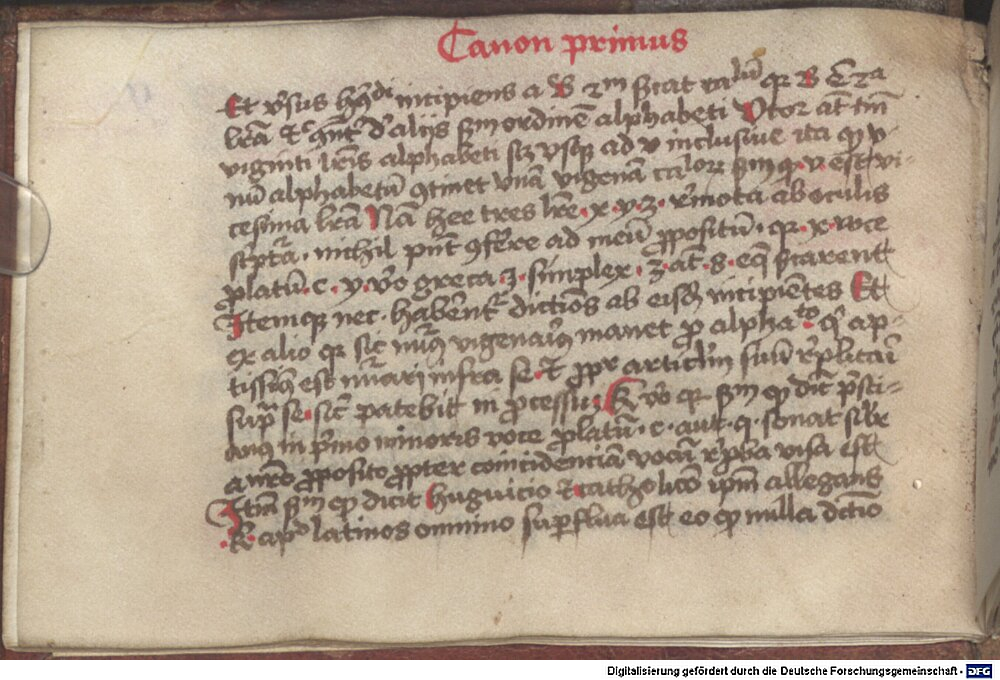 Canon primus
Et v͛sus hʒ̄ꝰ incipiens a B 2m
brā alijs ẜm ordinē alphabeti Utor at̄ tm̄
viginti lr̄is alphabeti sꝫ vsqꝫ ad v inclusive ita ꝙ v-
nū alphabetū ꝯtinet vnā vigenā caloꝝ ẜm q v est vi-
cesima lr̄a Nā hee tres lr̄e x y z r̄mota ab oculis
nichil pn̄t ꝯferre ad meū ꝓpositū qꝛ x voce
ꝓlatū c y v̓o greca z simplex at̄ s
Itemqꝫ nec habēnt dictiōs ab eisdē incipiētes Et
ex alio qꝛ sic nūꝰ vigenariꝰ manet ꝓ alphato q̄ ap-
tissimꝰ est nūrari infra se Et ꝓpꝛ articulū suū r̄plicatū
suꝑ se sic̄ patebit in ꝓcessu K v̓o qꝛ ẜm ꝙ dic̄ pͥsci-
anꝰ in pͥmo minoris voce ꝓlatū c aut q sonat
a nr̄o ꝓposito ꝓpter coincidenciā vocū r̄ꝓba visa est
Itē ẜm ꝙ dicit huguicio et catholicō ip̄m allegans
K apd̄ latinos omnino suꝑflua est eo ꝙ nulla dictio
Digitalisierung gefördert durch die Deutsche Forschungsgemeinschaft - DFG